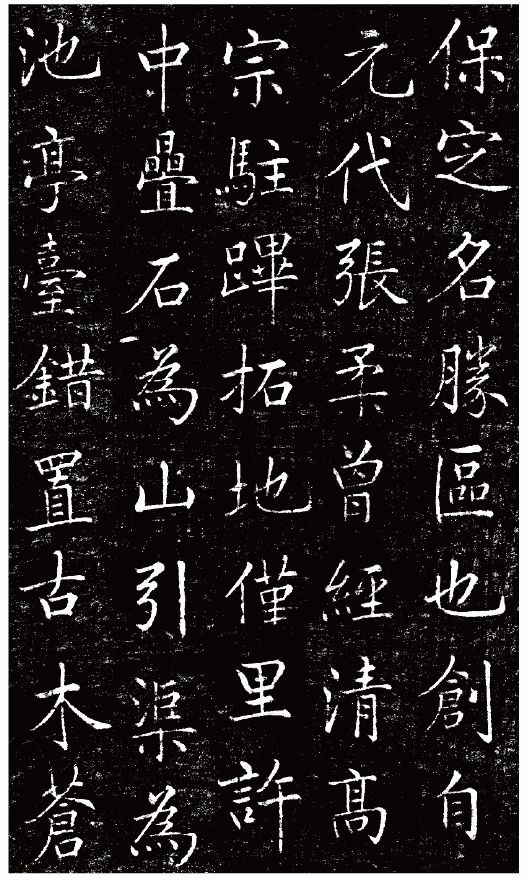 保定名勝區也創自
元代張柔曾經清髙
宗駐蹕拓地僅里許
中疊石為山引渠為
池亭臺錯置古木蒼